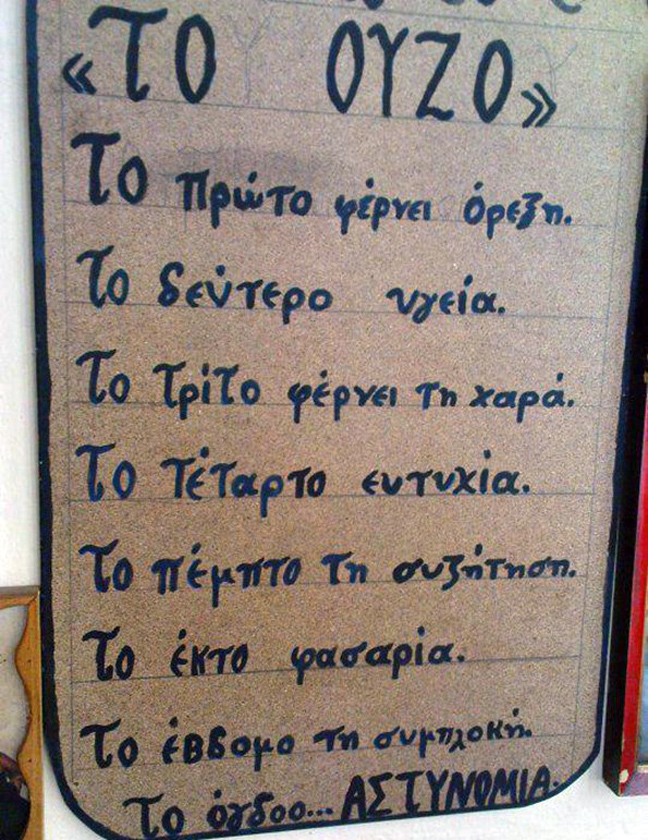 «ΤΟ ΟΥΖΟ»
Το πρώτο φέρνει όρεξη.
Το δεύτερο υγεία.
Το τρίτο φέρνει τη χαρά.
Το τέταρτο ευτυχία.
Το πέμπτο τη συζήτηση.
Το έκτο φασαρία.
Το έβδομο τη συμπλοκή.
Το όγδοο... ΑΣΤΥΝΟΜΙΑ.